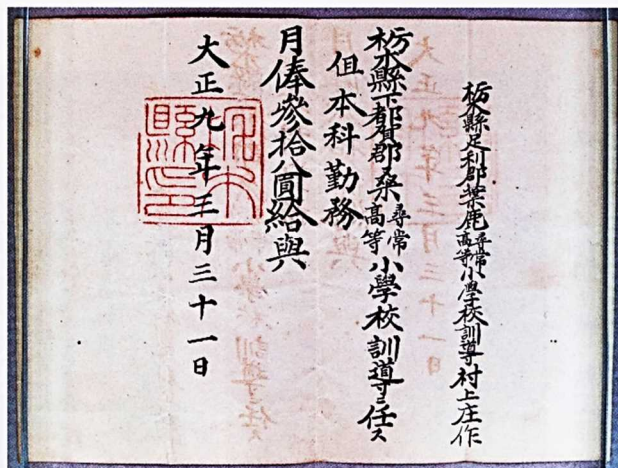 栃木縣足利郡葉鹿尋常高等小學校訓導村上庄作
栃木縣下都賀郡桑尋常高等小學校訓導ニ任ス
但本科勤務
月俸參拾八圓給與
大正九年三月三十一日
栃木縣印